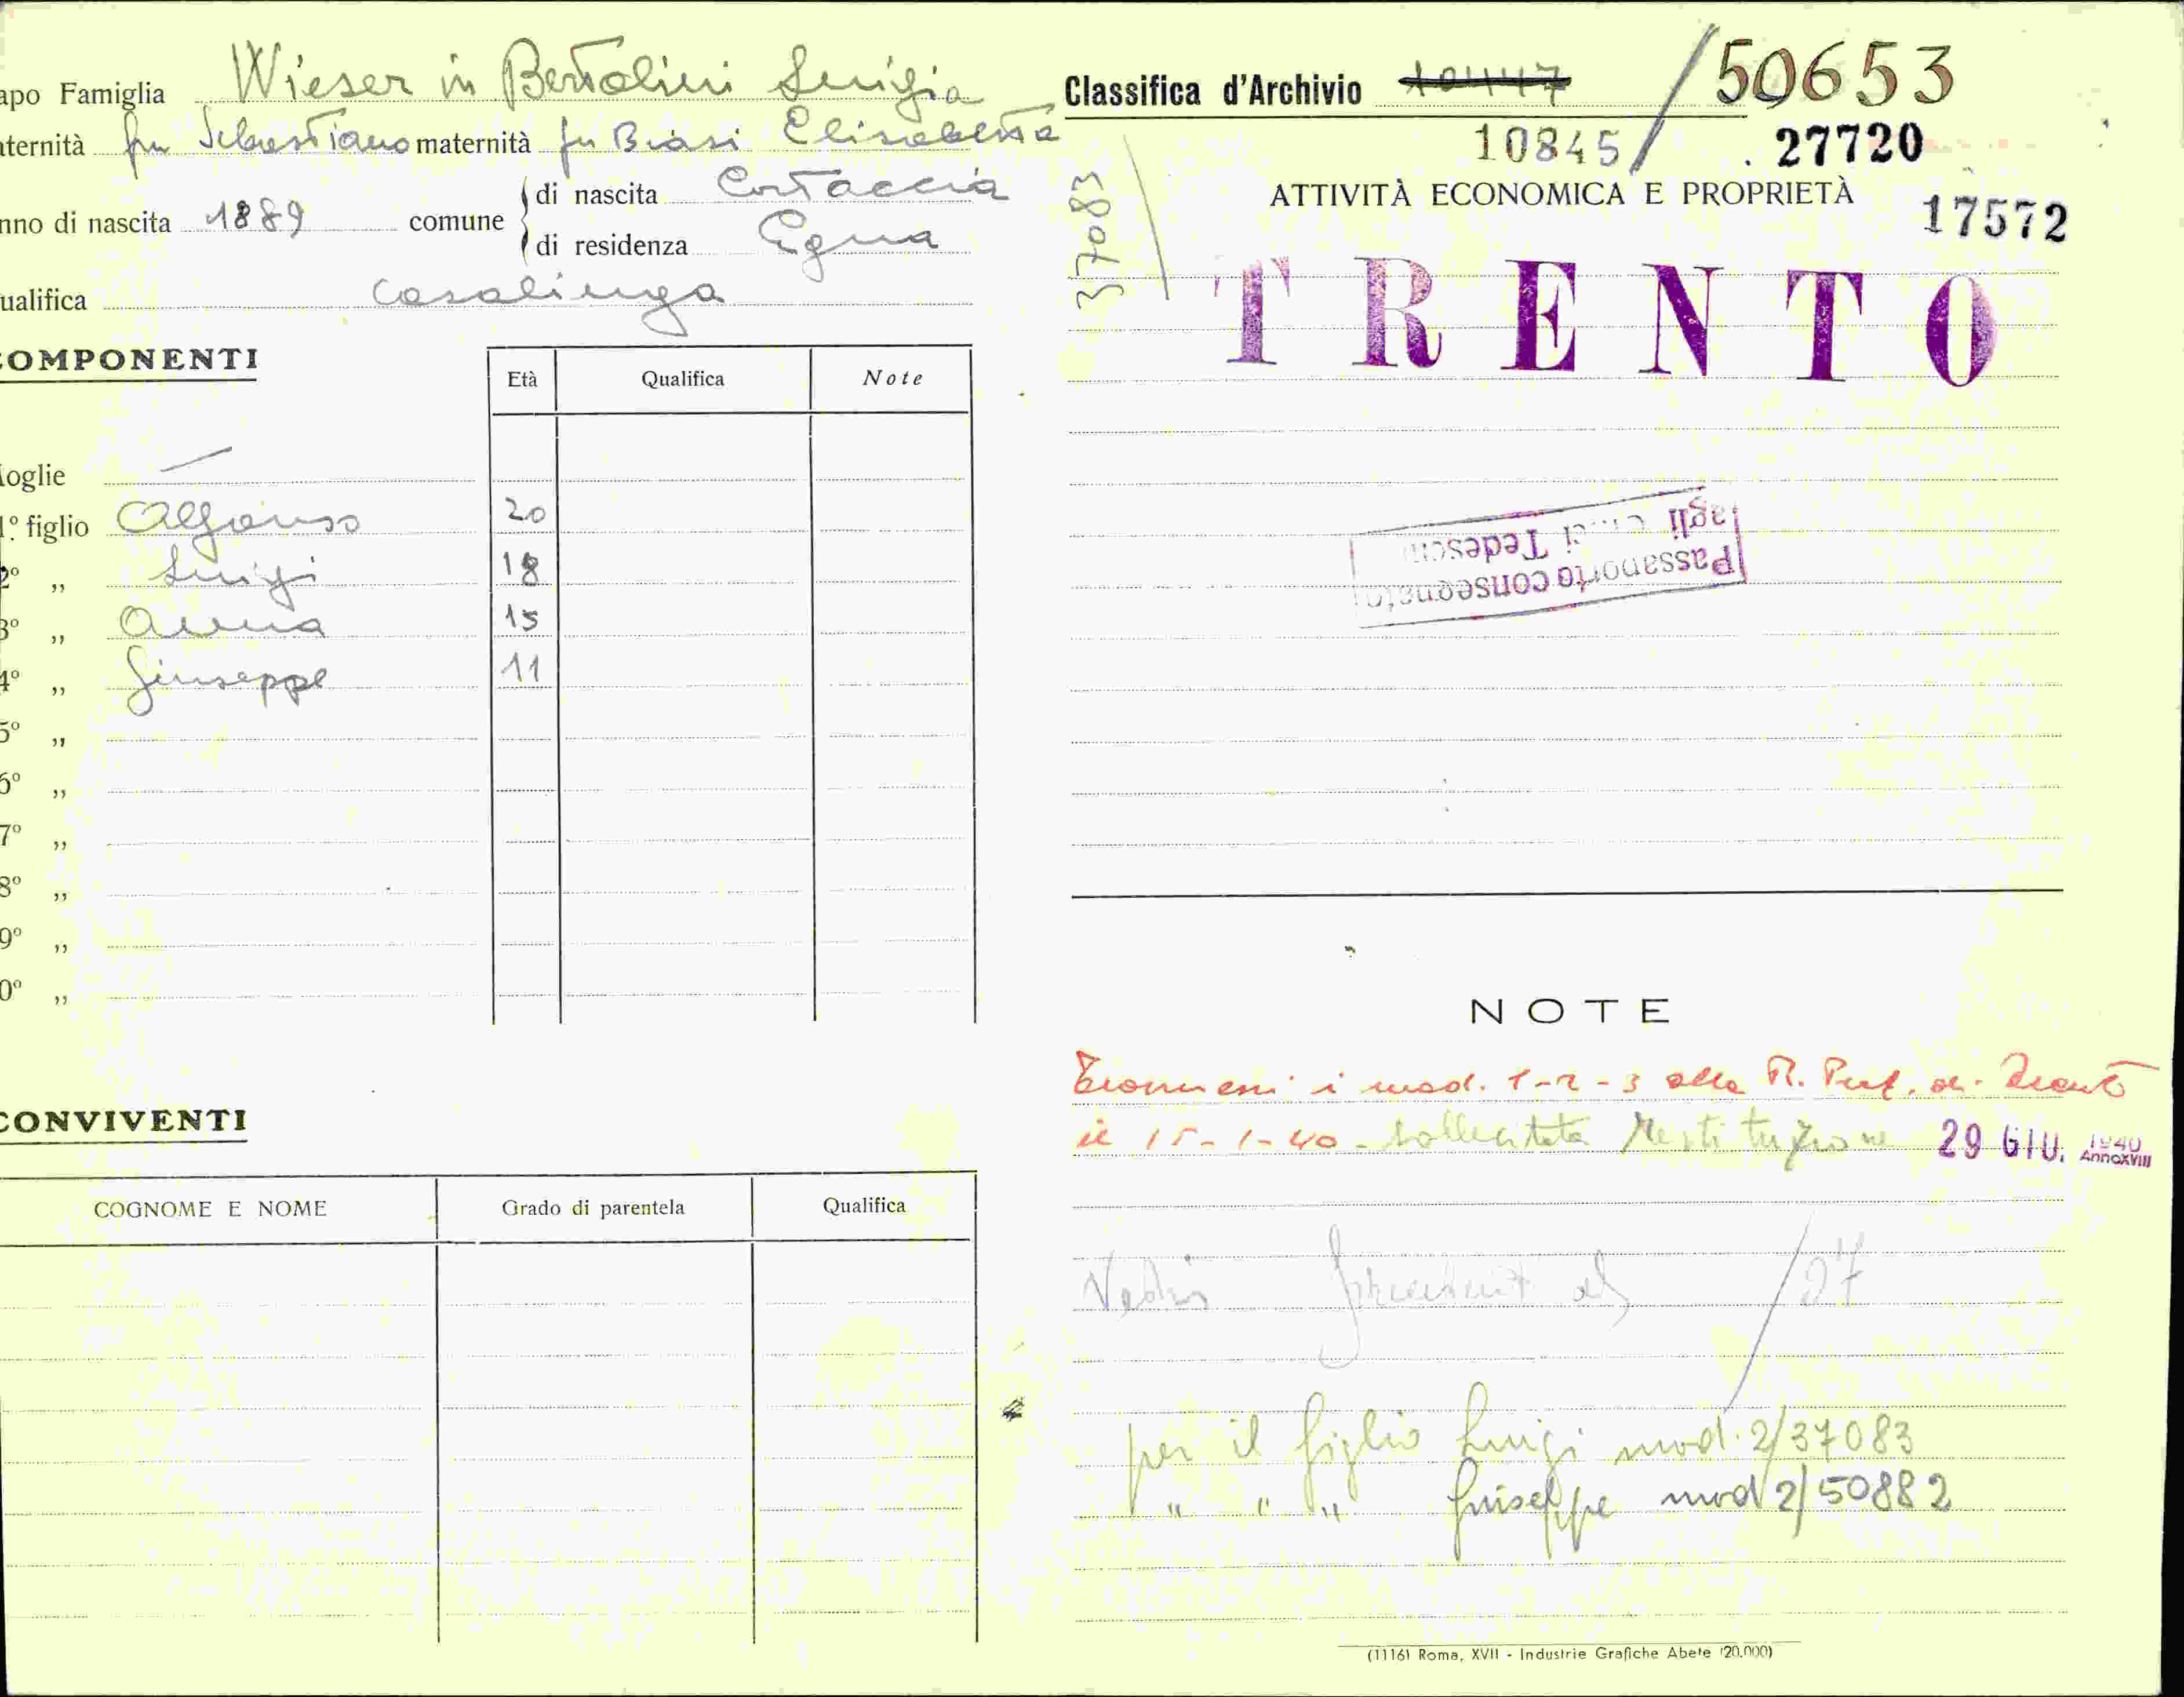 apo Famiglia Wieser in Bertolini Luigia
aternità fu Sebastiano maternità fu Biasi Elisabetta
nno di nascita 1889 comune di nascita Cortaccia
di residenza Egna
ualifica casalinga
COMPONENTI
Età Qualifica Note
oglie —
1º figlio Alfonso 20
2º „ Luigi 18
3º „ Anna 15
4º „ Giuseppe 11
5º „
6º „
7º „
8º „
9º „
0º „
CONVIVENTI
COGNOME E NOME Grado di parentela Qualifica
Classifica d'Archivio /50653
10845/ . 27720
37083
ATTIVITÀ ECONOMICA E PROPRIETÀ
17572
TRENTO
Passaporto consegnato
agli Tedeschi
NOTE
i mod. 1-2-3 alla R. Pref. di Trento
il 15-1-40 - sollecitata restituzione 29 GIU. 1940
Anno XVIII
/27
per il figlio Luigi mod. 2/37083
" " " Giuseppe mod 2/50882
(1116) Roma, XVII - Industrie Grafiche Abete (20.000)